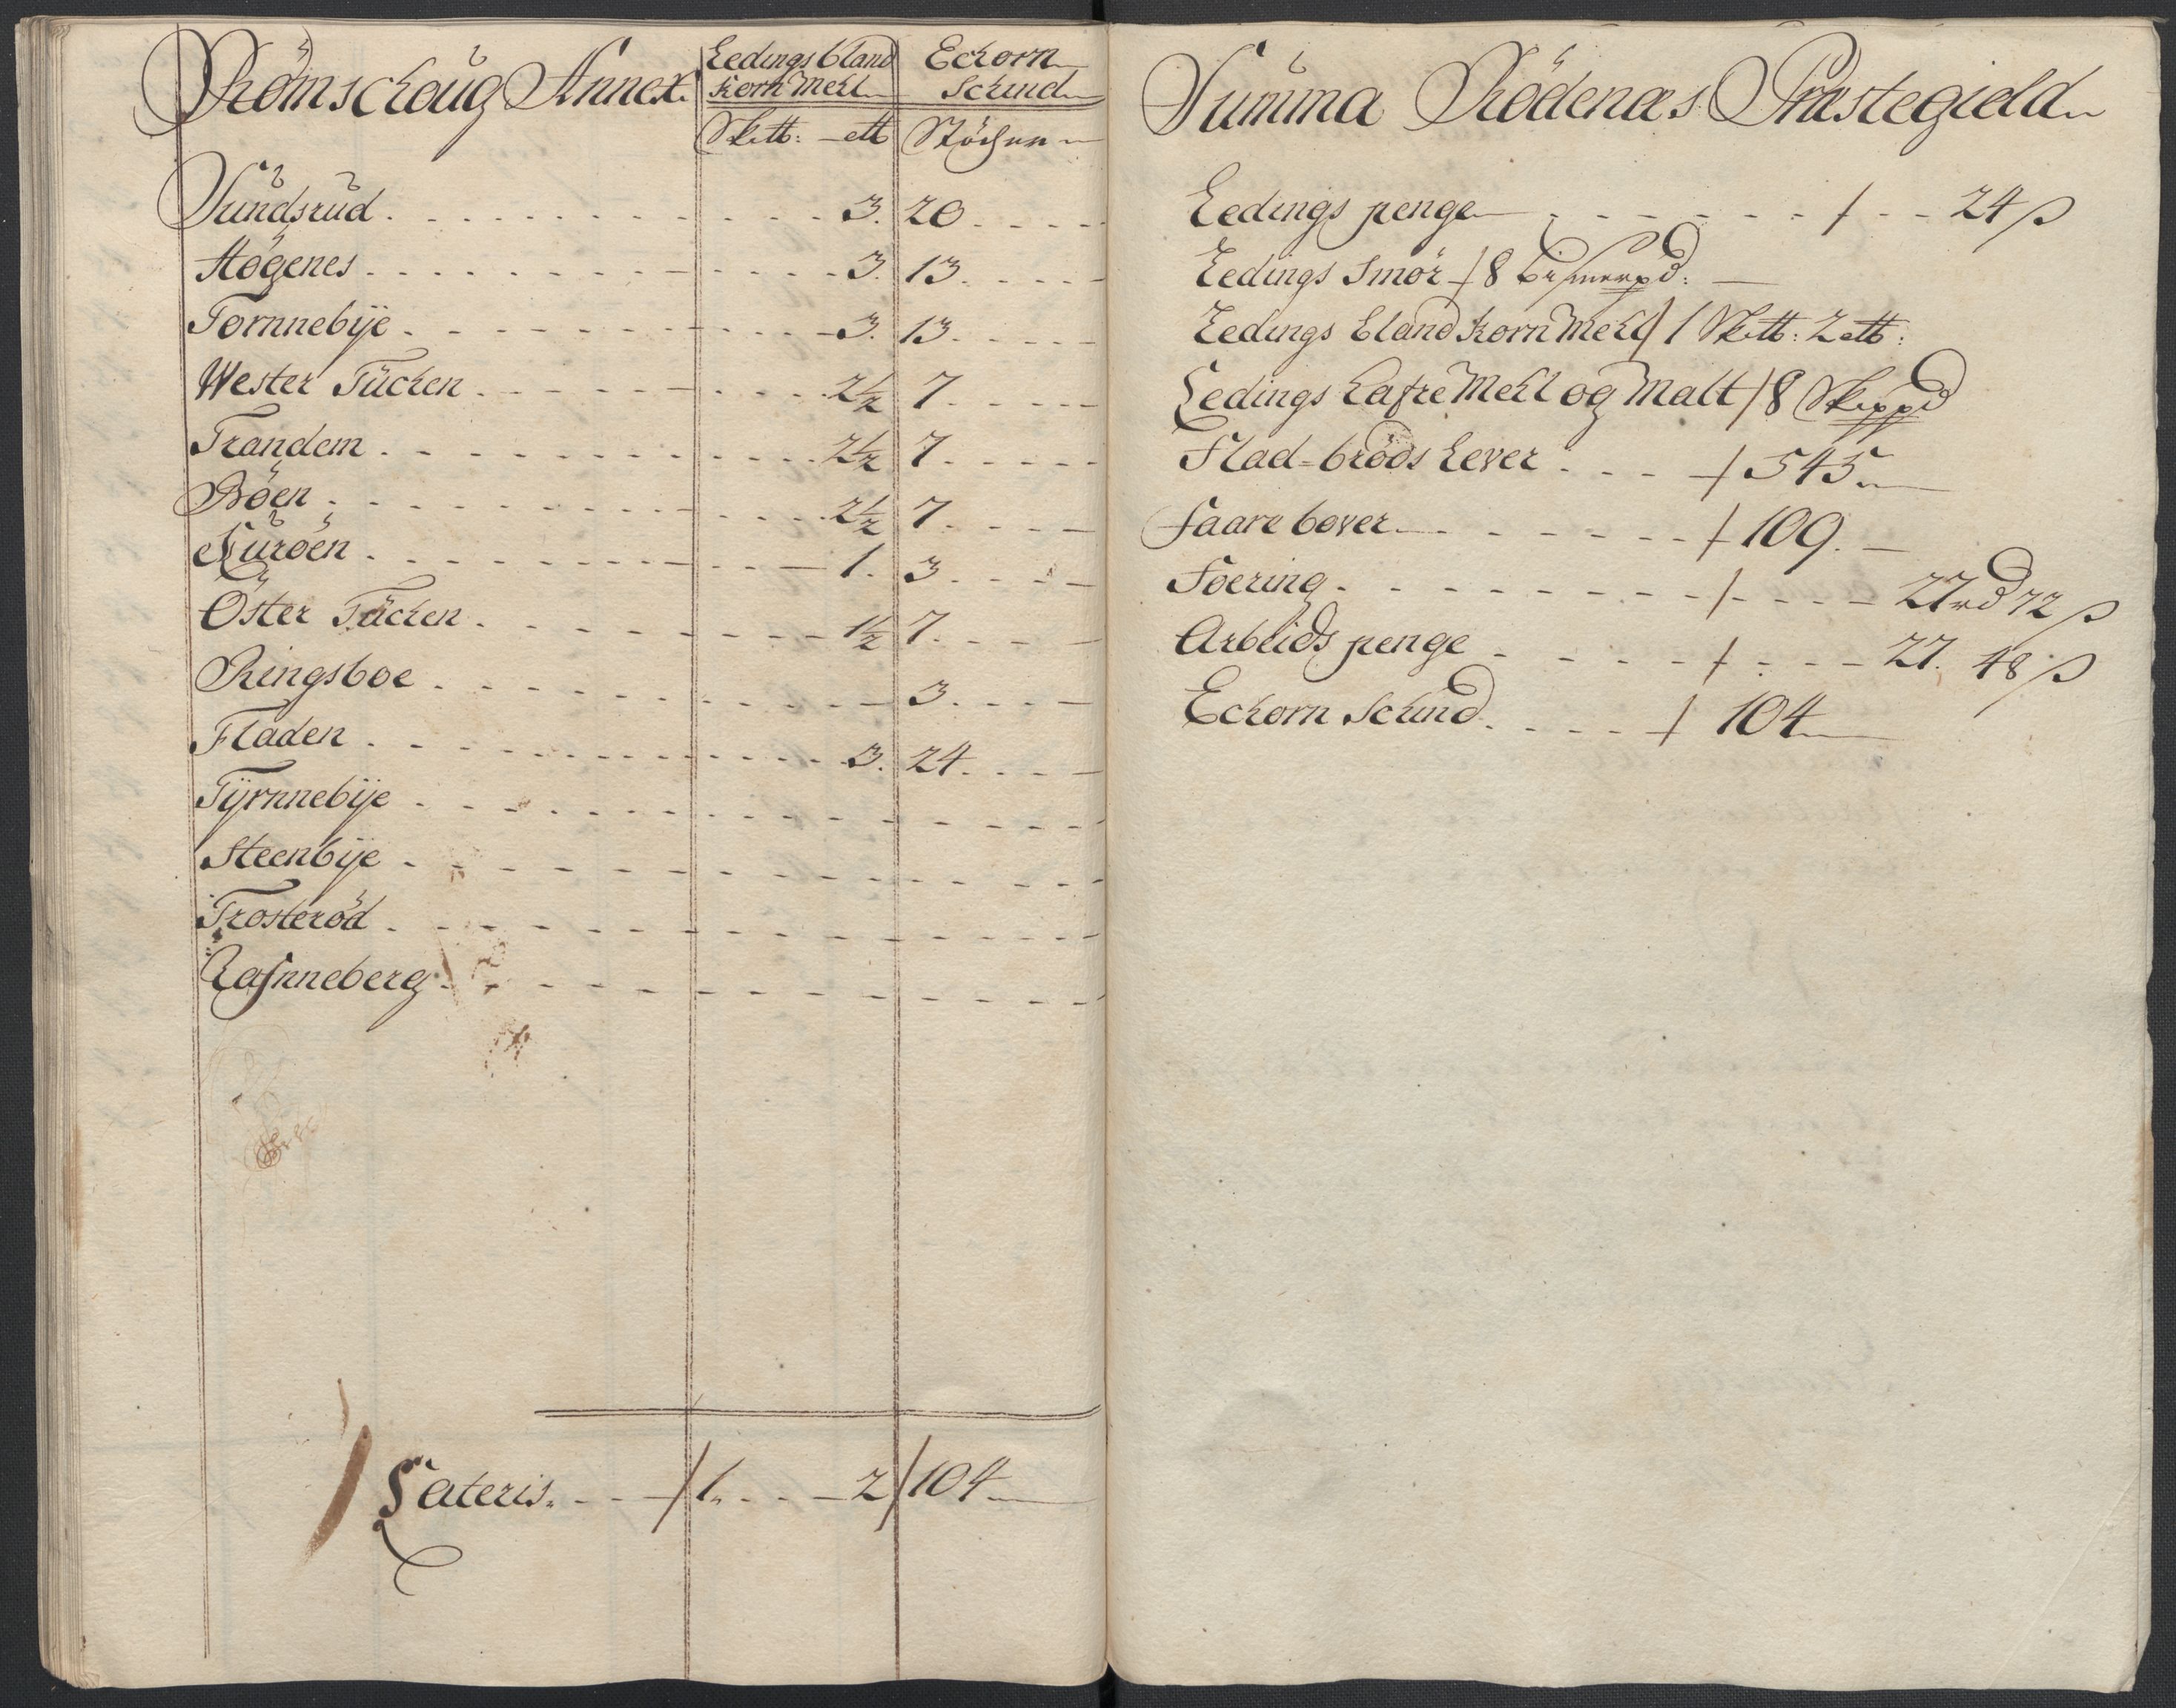 Römschoug Annex.
Ledings bland Korn Mehl
Eckorn Schind
Skett: — ett
Stöcher
Sundsrud . . . 3. 20 . . .
Högenes . . . 3. 13 . . .
Tornnebÿe . . . 3. 13 . . .
Wester Tüchen . . . 2½ 7 . . .
Trandem . . . 2½ 7 . . .
Böen . . . 2½ 7 . . .
Kuröen . . . 1. 3 . . .
Öster Tüchen . . . 1½ 7 . . .
Ringsboe . . . 3 . . .
Fladen . . . 3. 24 . . .
Tÿrnnebÿe . . .
Steenbÿe . . .
Trosteröd . . .
Lateris. - - - / 1. - - - 2 / 104
Summa Rödenæs Præstegield
Ledings penge - - - / - - 24 ß
Ledings Smör / 8 bismerpd:
Ledings bland Korn Mehl / 1 Skett: 2 ett:
Ledings hafre Mehl og Malt / 8 Skippd
Flad-bröds Lever . . . / 545
Faare bover - - - / 109.
Foering - - - / - - - 27 rd 72 ß
Arbeids penge - - - / - - - 27. 48 ß
Eckorn Schind . . . / 104